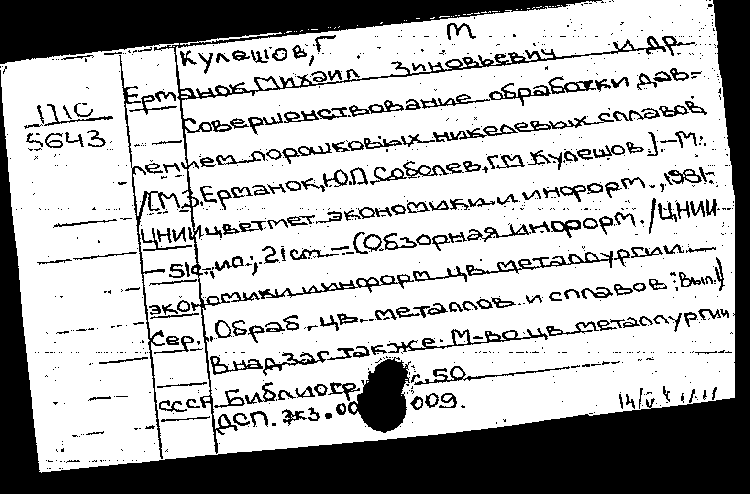 Кулешов, Г М
Ерманок, Михаил Зиновьевич и др.
П1С
5643
Совершенствование обработки дав-
лением порошковых никелевых сплавов
/[М.З. Ерманок, Ю.П. Соболев, Г.М. Кулешов]. – М.:
ЦНИИцветмет экономики и информ., 1981.
– 51с., ил.; 21см – (Обзорная информ. / ЦНИИ
экономики и информ цв. металлургии
Сер. "Обраб. цв. металлов и сплавов"; Вып.1)
В над заг также: М-во цв. металлургии
СССР Библиогр. с. 50.
ДСП. Экз. 00 009.